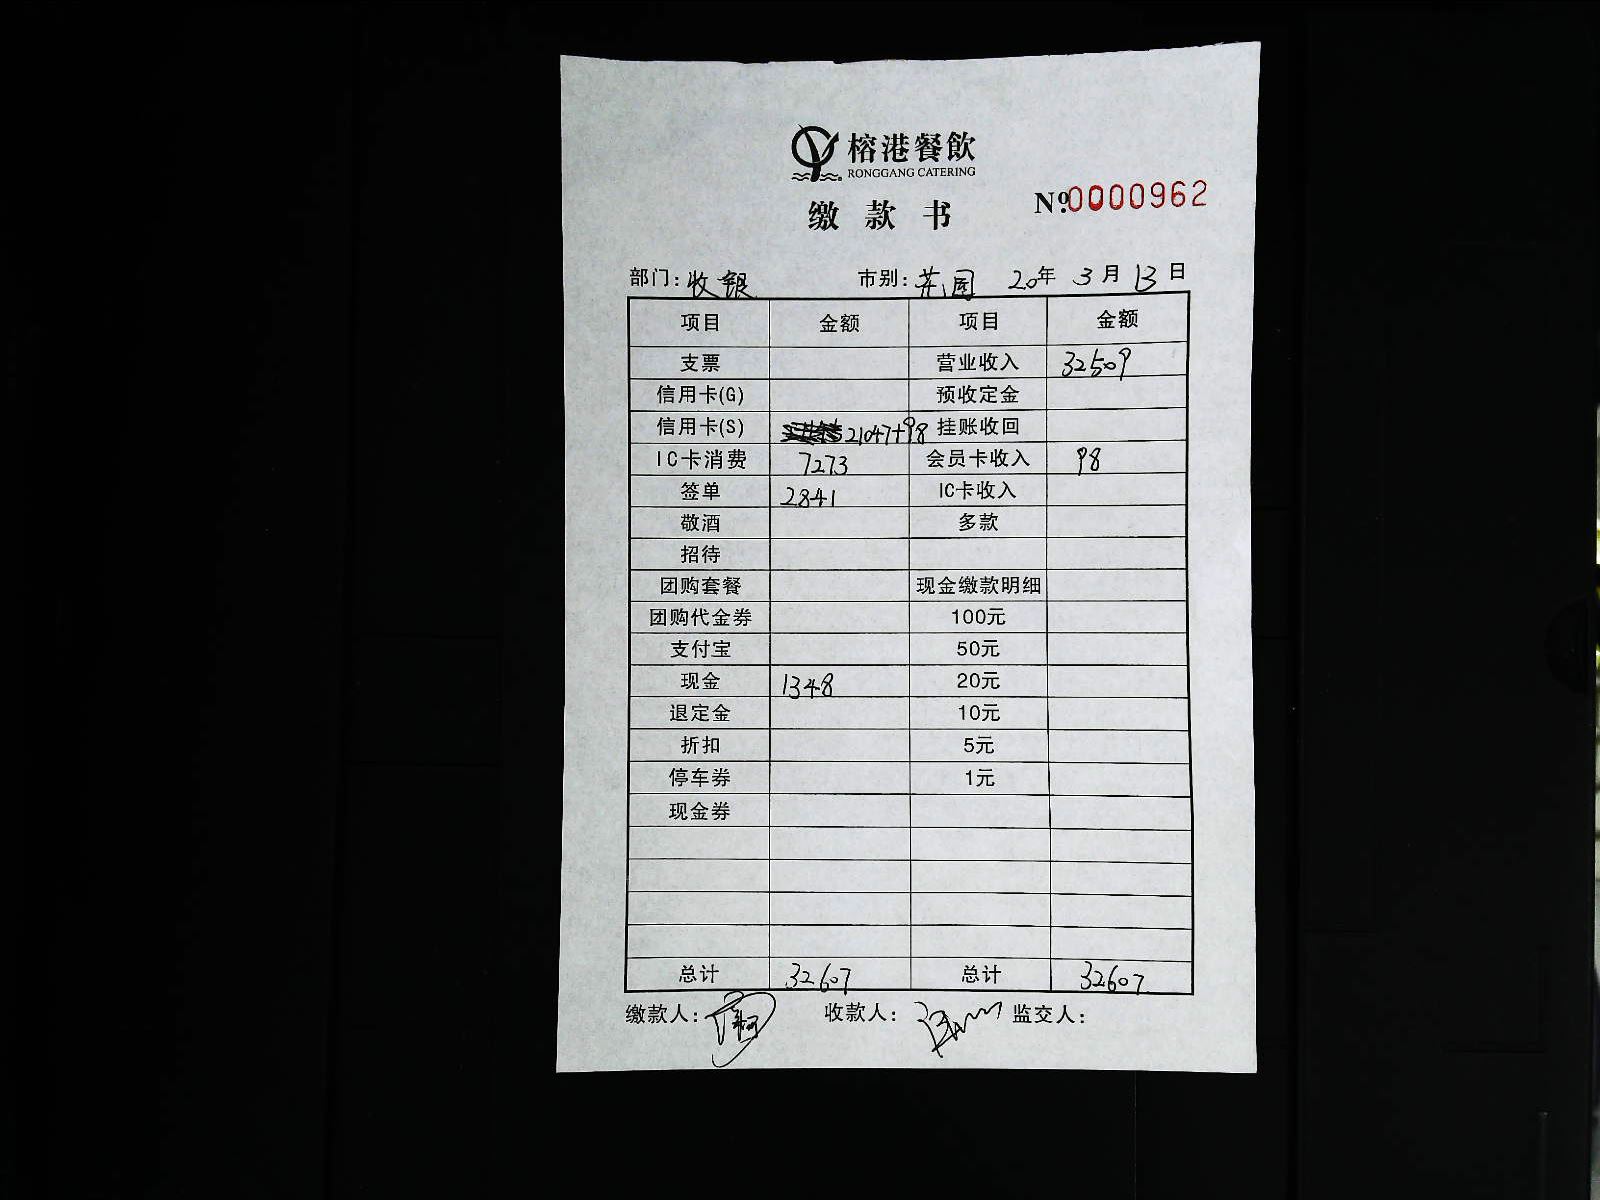 榕港餐飲
RONGGANG CATERING
缴款书 Nº.0000962
部门: 收银 市别: 茶园 20年 3月 13日
项目 金额 项目 金额
支票 营业收入 32509
信用卡(G) 预收定金
信用卡(S) 21047+98 挂账收回
IC卡消费 7273 会员卡收入 98
签单 2841 IC卡收入
敬酒 多款
招待
团购套餐 现金缴款明细
团购代金券 100元
支付宝 50元
现金 1348 20元
退定金 10元
折扣 5元
停车券 1元
现金券
总计 32607 总计 32607
缴款人: 收款人: 监交人: